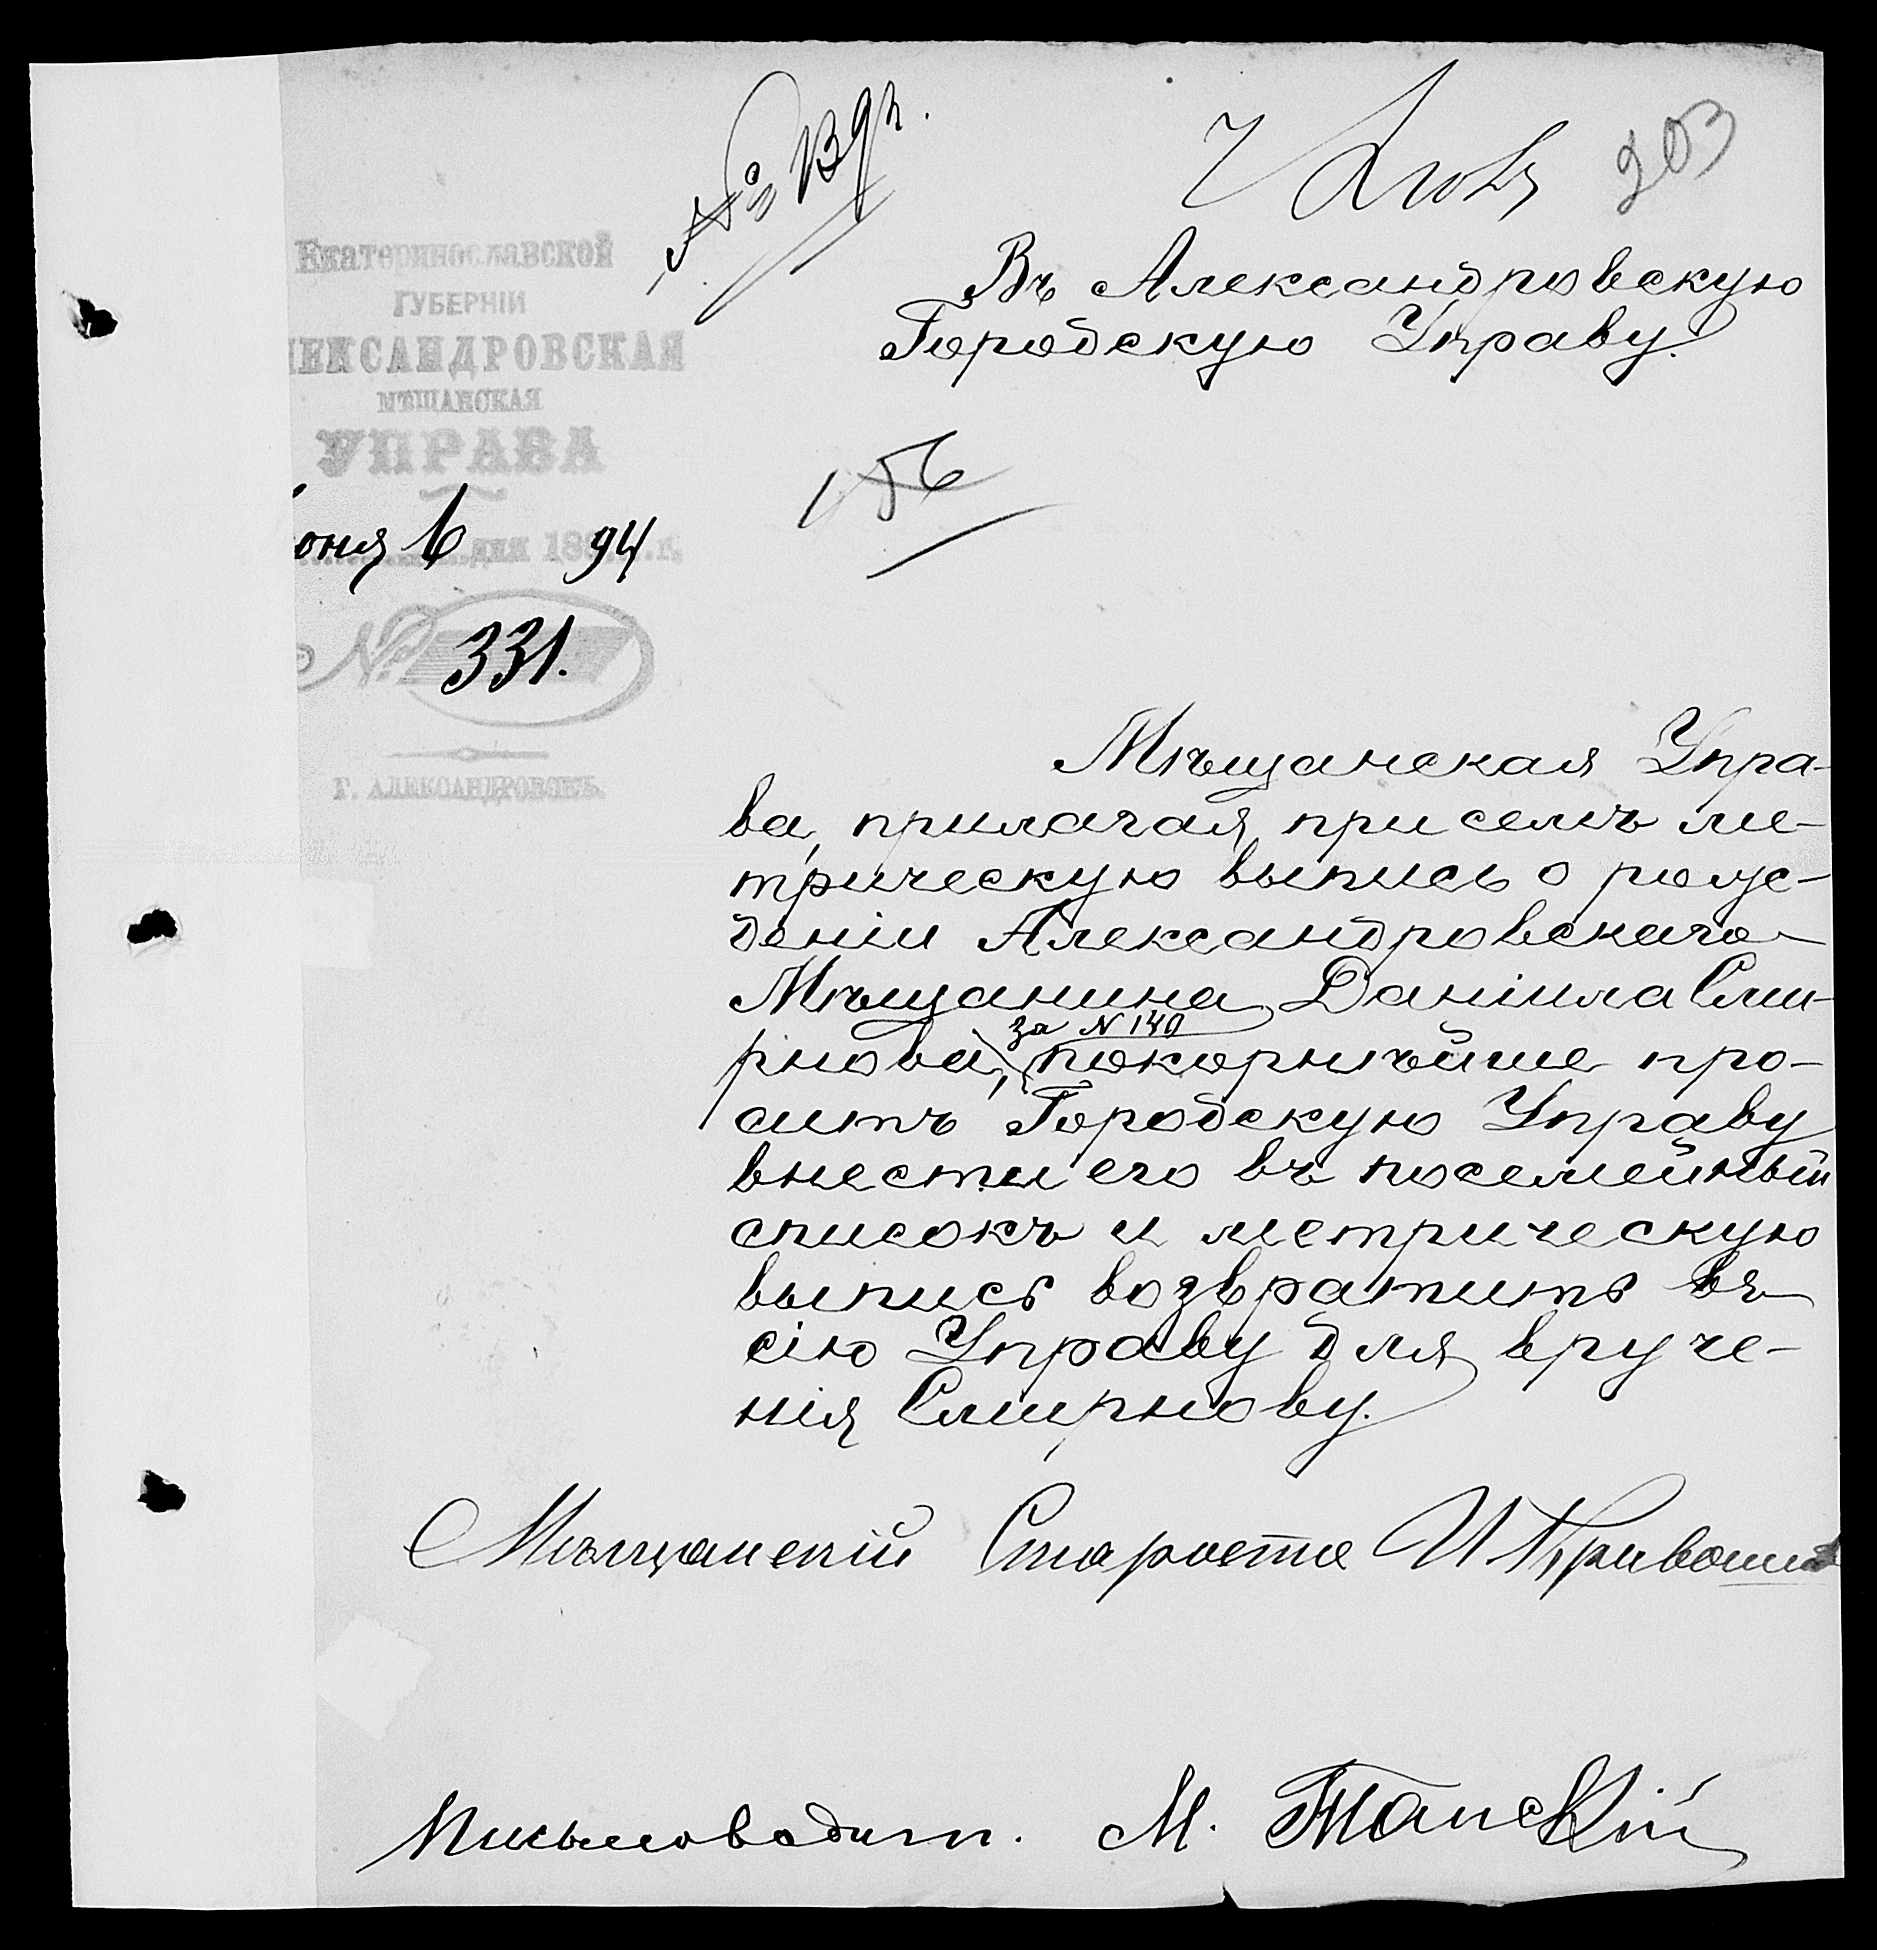 203
Екатеринославской
ГУБЕРНІИ
ЛЕКСАНДРОВСКАЯ
МѢЩАНСКАЯ
УПРАВА
юня 6 дня 1894 г.
№ 331.
Г. АЛЕКСАНДРОВСКЪ.
Въ Александровскую
Городскую Управу.
156
Мѣщанская Упра-
ва, прилагая при семъ ме-
трическую выпись о рож-
деніи Александровскаго
Мѣщанина Даніила Сми-
рнова, за N 140 покорнѣйше про-
ситъ Городскую Управу
внести его въ посемейный
списокъ и метрическую
выпись возвратить въ
сію Управу для вруче-
нія Смирнову.
Мѣщанскій Староста И
Письмоводит. М.